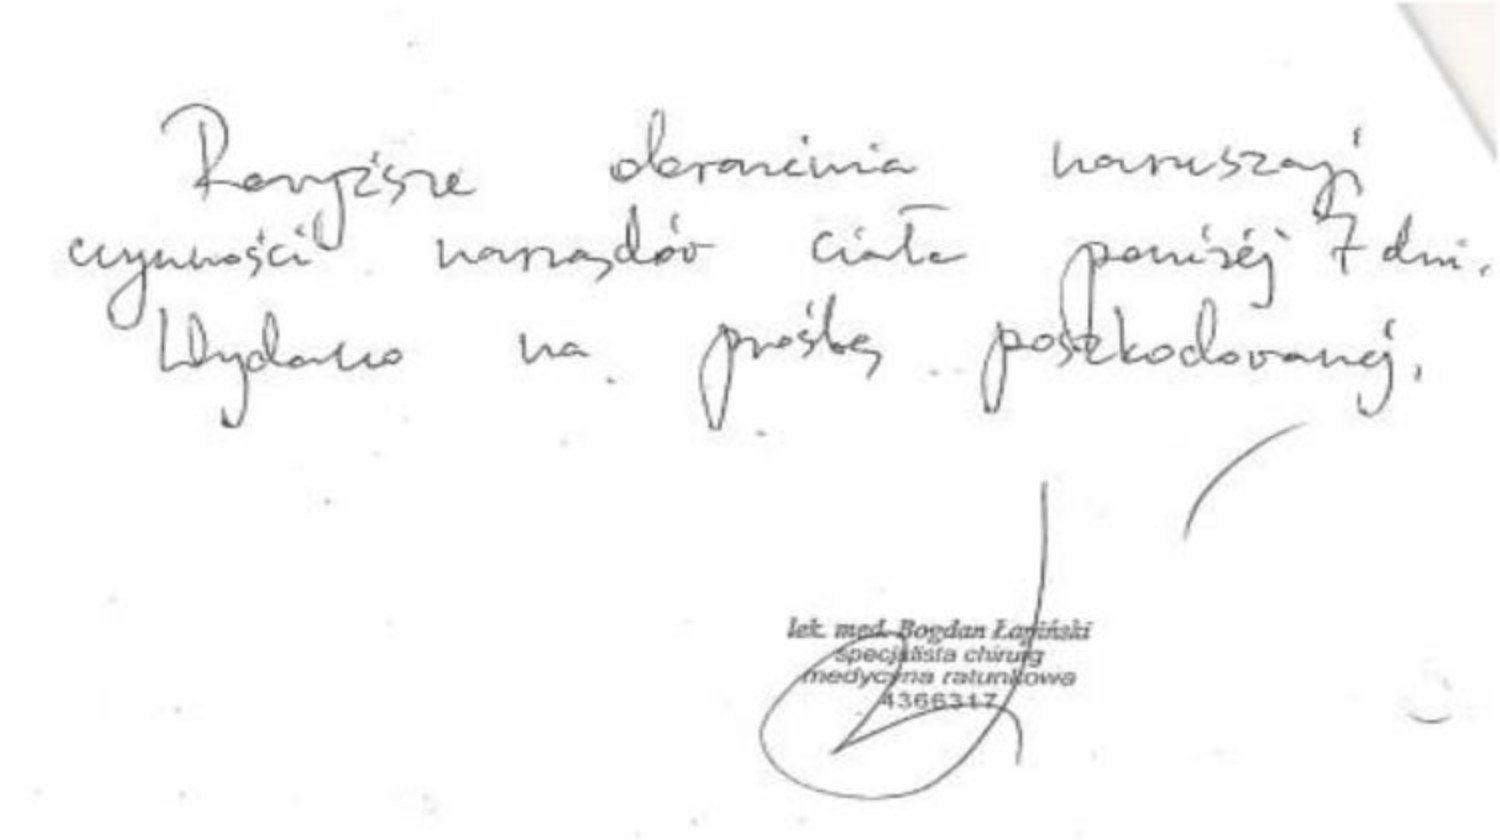 Powyższe obrażenia naruszają
czynności narządów ciała poniżej 7 dni.
Wydano na prośbę poszkodowanej.
lek. med. Bogdan Łapiński
specjalista chirurg
medycyna ratunkowa
4366317